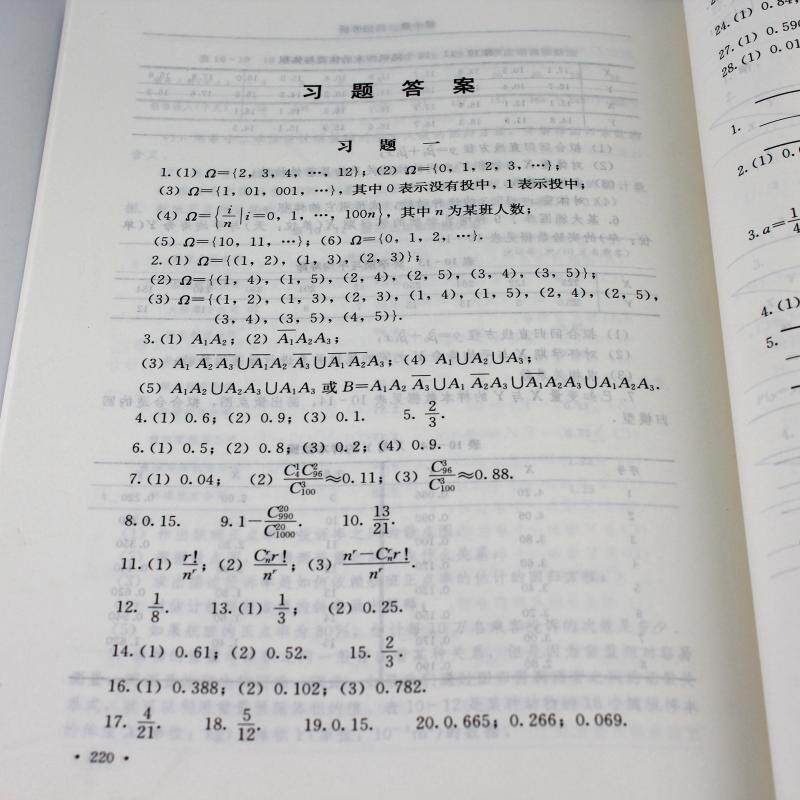 习题答案
习题一
1.(1) Ω={2, 3, 4, …, 12}; (2) Ω={0, 1, 2, 3, …};
(3) Ω={1, 01, 001, …}, 其中 0 表示没有投中, 1 表示投中;
(4) Ω={i/n | i=0, 1, …, 100n}, 其中 n 为某班人数;
(5) Ω={10, 11, …}; (6) Ω={0, 1, 2, …}.
2.(1) Ω={(1, 2), (1, 3), (2, 3)};
(2) Ω={(1, 4), (1, 5), (2, 4), (2, 5), (3, 4), (3, 5)};
(3) Ω={(1, 2), (1, 3), (2, 3), (1, 4), (1, 5), (2, 4), (2, 5),
(3, 4), (3, 5), (4, 5)}.
3.(1) A₁A₂; (2) A̅₁A₂A₃;
(3) A₁ A̅₂ A̅₃∪A̅₁A₂ A̅₃∪A̅₁ A̅₂A₃; (4) A₁∪A₂∪A₃;
(5) A₁A₂∪A₂A₃∪A₁A₃ 或 B=A₁A₂ A̅₃∪A₁ A̅₂A₃∪A̅₁A₂A₃∪A₁A₂A₃.
4.(1) 0.6; (2) 0.9; (3) 0.1. 5. 2/3.
6.(1) 0.5; (2) 0.8; (3) 0.2; (4) 0.9.
7.(1) 0.04; (2) C₄¹C₉₆²/C₁₀₀³≈0.11; (3) C₉₆³/C₁₀₀³≈0.88.
8. 0.15. 9. 1−C₉₉₀²⁰/C₁₀₀₀²⁰. 10. 13/21.
11.(1) r!/nʳ; (2) Cₙʳr!/nʳ; (3) (nʳ−Cₙʳr!)/nʳ.
12. 1/8. 13.(1) 1/3; (2) 0.25.
14.(1) 0.61; (2) 0.52. 15. 2/3.
16.(1) 0.388; (2) 0.102; (3) 0.782.
17. 4/21. 18. 5/12. 19. 0.15. 20. 0.665; 0.266; 0.069.
· 220 ·
24.(1) 0.84,
27.(1) 0.59
28.(1) 0.01
1.
2.(1) 0.
3. a=1/4
4.(1)
5.